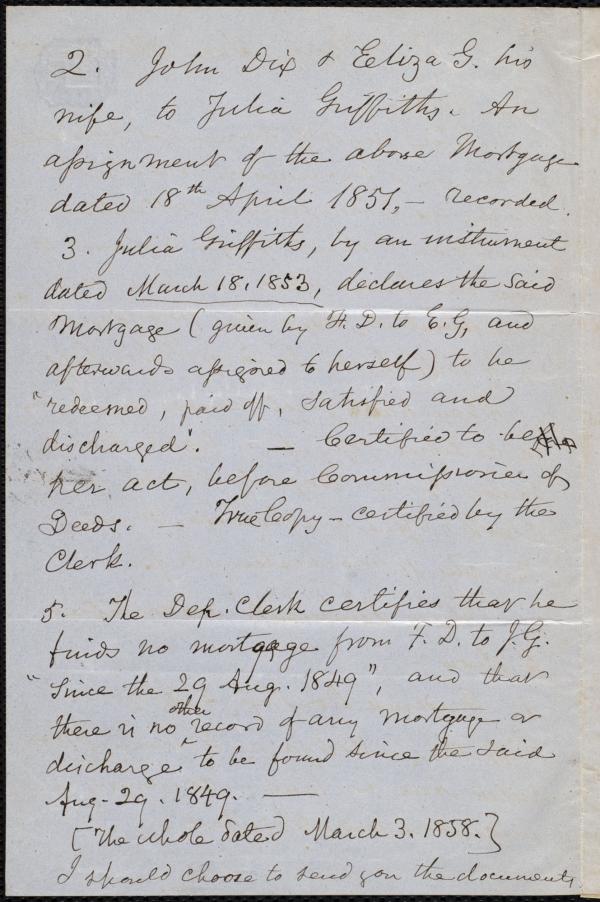 2. John Dix & Eeliza G. his
wife, to Julia Griffiths. An
assignment of the above Mortgage
dated 18th April 1851, — recorded.
3. Julia Griffiths, by an instrument
dated March 18. 1853, declares the said
Mortgage (given by F. D. to E. G, and
afterwards assigned to herself) to be
"redeemed, paid off, satisfied and
discharged". — Certified to be
her act, before Commissioner of
Deeds. — True Copy — certified by the
Clerk.
5. The Dep. Clerk certifies that he
finds no mortgage from F. D. to J. G.
"since the 29 Aug. 1849", and that
there is no other record of any mortgage or
discharge to be found since the said
Aug. 29. 1849. —
[The whole dated March 3. 1858.]
I should choose to send you the documents,